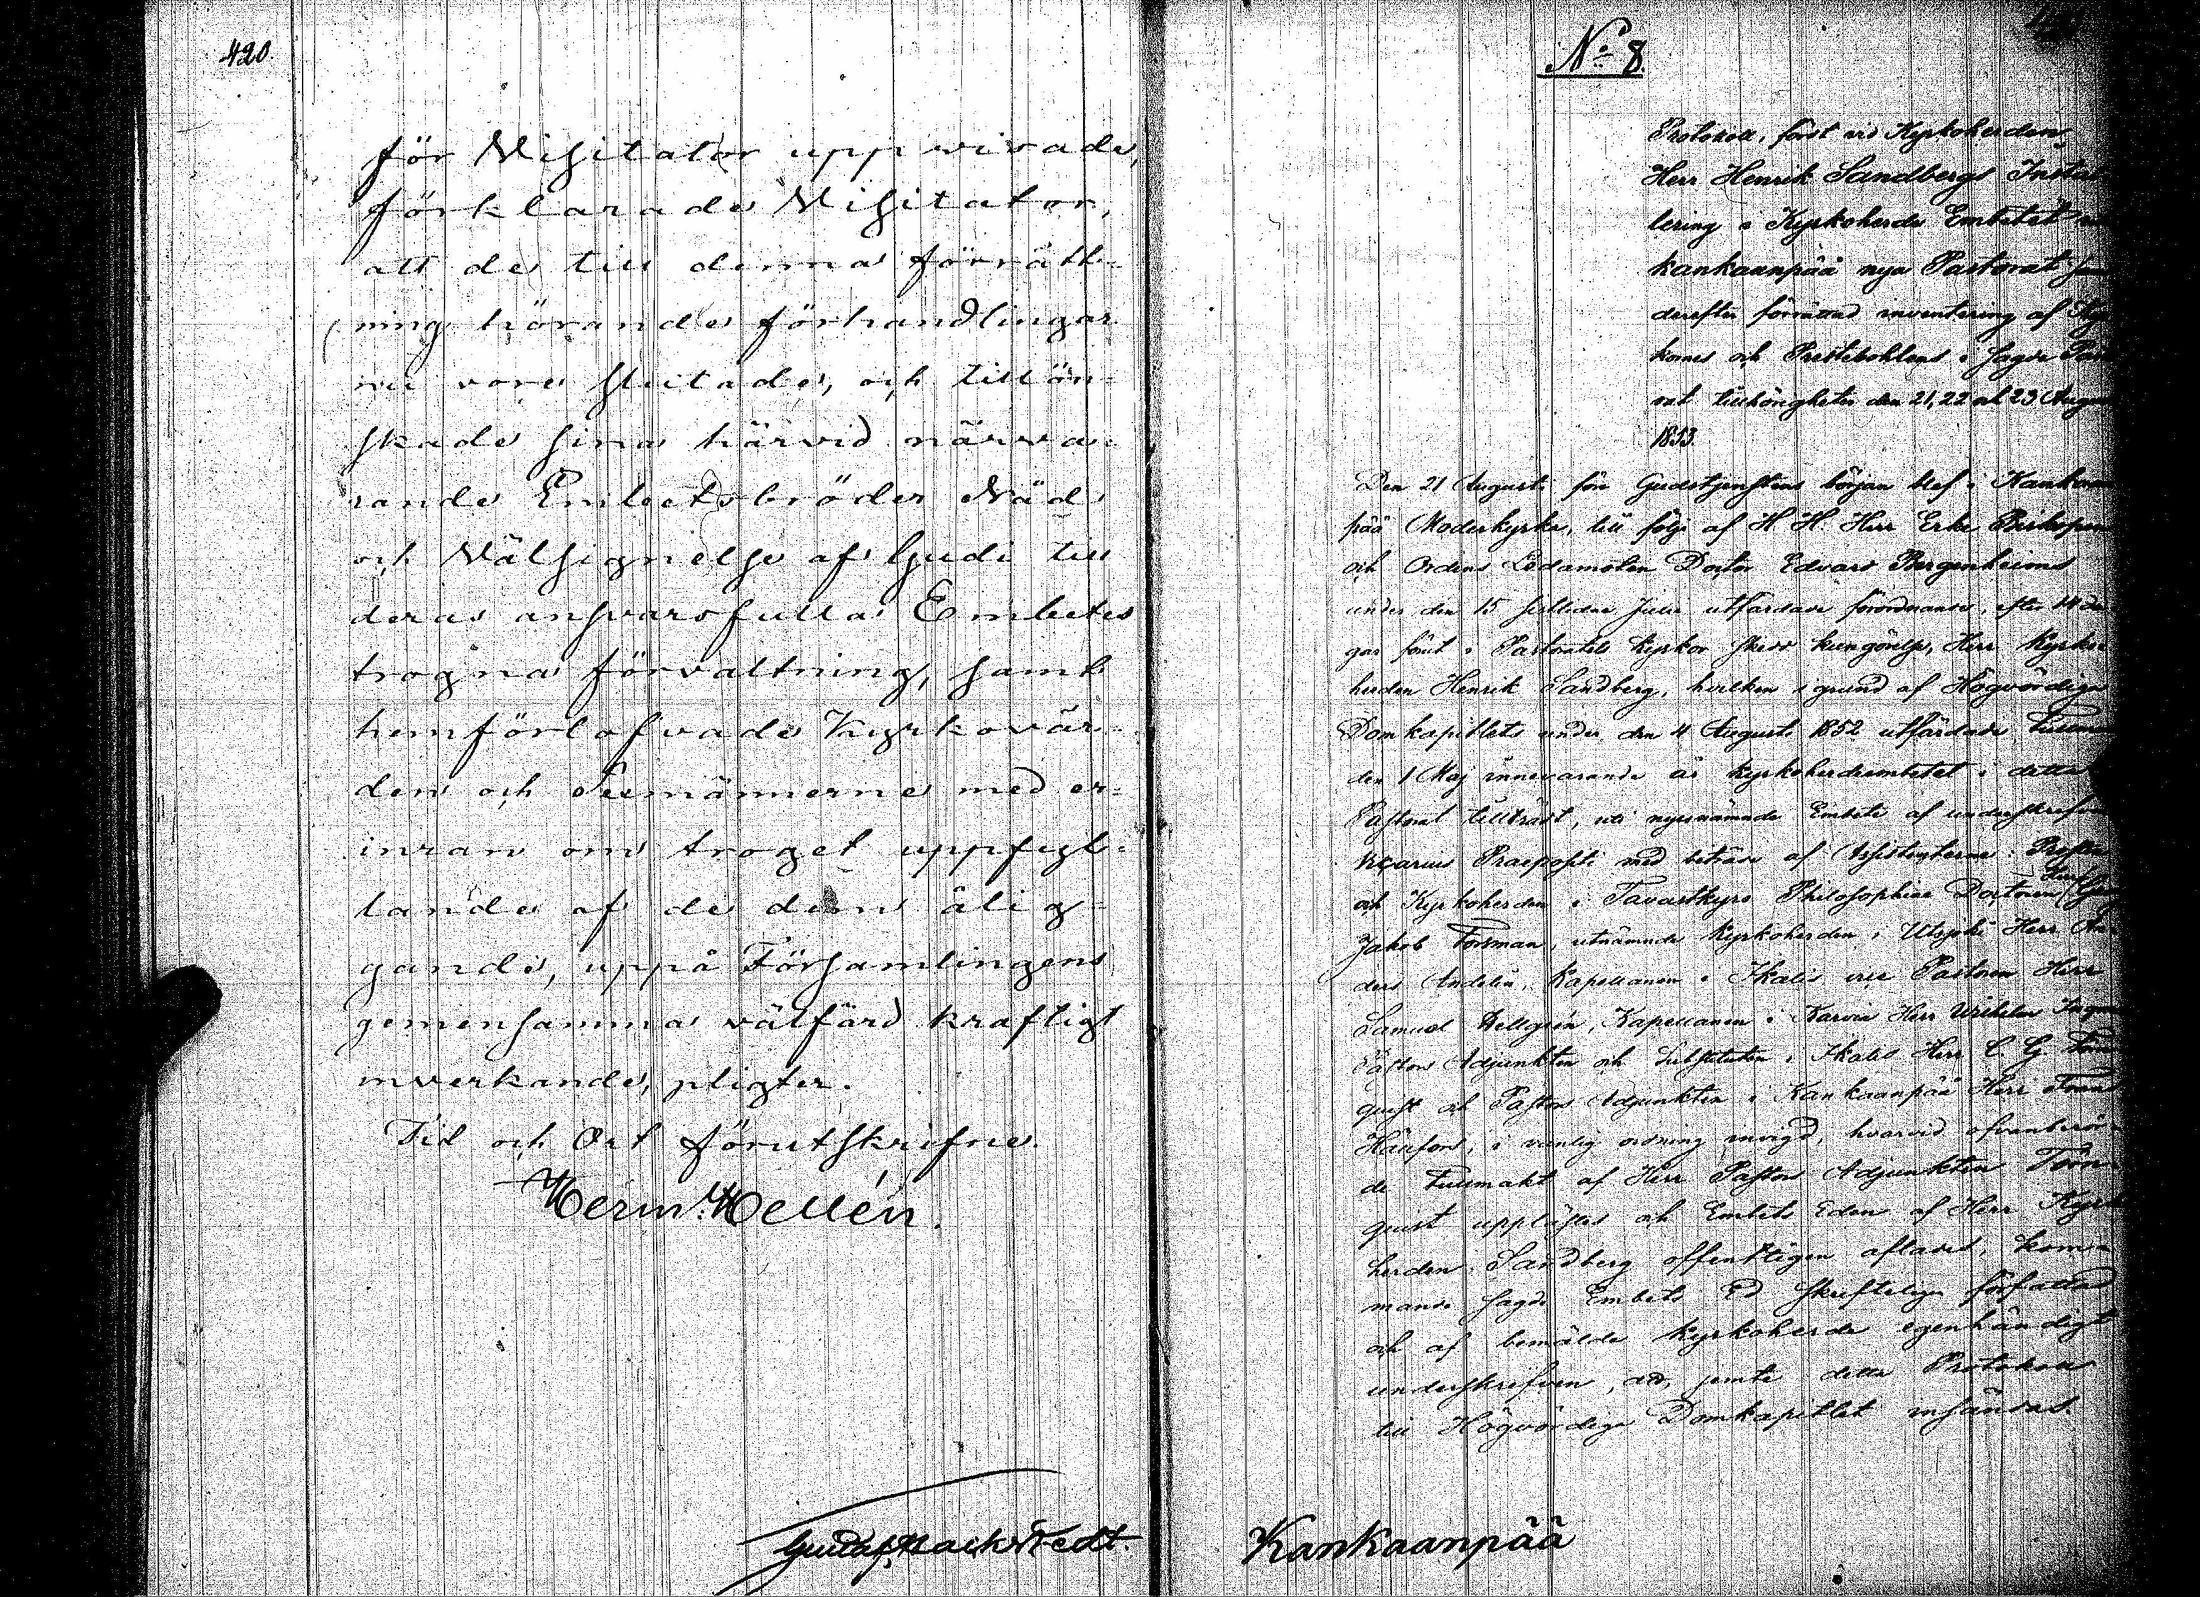 420.
för Visitator uppvisade,
förklarade Visitator,
att de till denna förrätt-
ning hörande förhandlingar
nu voro slutade, och tillön-
skade sina härvid närva-
rande Embetsbröder Nåd
och Välsignelse af Gud i till
deras ansvarsfulla Embetes
trogna förvaltning, samt
hemförlofvade Kyrkovär-
den och Sexmännerne med er-
inran om troget uppfyl-
lande af de dem ålig-
gande, uppå Församlingens
gemensamma välfärd kraftigt
inverkande, pligter.
Tid och Ort förutskrifne.
Herm. Hellén.
Gustaf Backstedt.
No 8.
Protokoll, fördt vid Kyrkoherden
Herr Henrik Sandbergs Instal
lering i Kyrkoherde Embetet
Kankaanpää nya Pastorat
derefter förrättad inventering af
kornes och Prestebohlens i sagde
rat tillhörigheter den 21, 22 och 23
1853.
Den 21 Augusti före Gudstjenstens början blef i
pää Moderkyrka, till följe af H. H. Herr Erke Biskopen
och Ordens Ledamoten Doctor Edvard Bergenheims
under den 15 sistlidne Julii utfärdade förordnande, efter 14 da
gar förut i Pastoratets Kyrkor skedd kungörelse, Herr Kyrko
herden Henrik Sandberg, hvilken i grund af Högvördiga
Domkapitlets under den 4 Augusti 1852 utfärdade
den 1 Maj innevarande år Kyrkoherdeembetet i detta
Pastorat tillträdt, uti nysnämnde Embete af
Vicarius Praepositi med biträde af Assistenterne:
och Kyrkoherden i Tavastkyro Philosophiae Doctoren
Jakob Forsman, utnämnde Kyrkoherden i Utsjoki Herr An
ders Andelin, Kapellanen i Ikalis vice Pastorn Herr
Samuel Hellgrén, Kapellanen i Karvia Herr Wilhelm
Pastors Adjunkten och Substituten i Ikalis Herr C. G. Törn
quist och Pastors Adjunkten i Kankaanpää Herr
i vanlig ordning invigd, hvarvid ofvanberör
de Fullmakt af Herr Pastors Adjunkten Törn
quist upplästes och Embets Eden af Herr Kyrko
herden Sandberg offentligen aflades, kom-
mande sagde Embets Ed skrifteligen författad
och af bemälde Kyrkoherde egenhändigt
underskrifven, att jemte detta Protokoll
till Högvördiga Domkapitlet insändas.
Kankaanpää